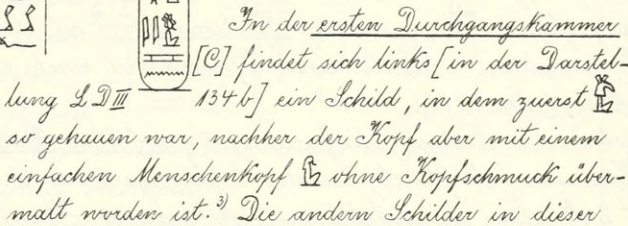 In der ersten Durchgangskammer
[C] findet sich links [in der Darstel-
lung LD III 134b] ein Schild, in dem zuerst
so gehauen war, nachher der Kopf aber mit einem
einfachen Menschenkopf ohne Kopfschmuck über-
malt worden ist.³⁾ Die andern Schilder in dieser